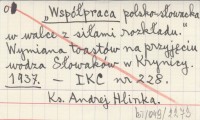 „Współpraca polsko-słowacka
w walce z siłami rozkładu."
Wymiana toastów na przyjęciu
wodza Słowaków w Krynicy.
1937. — IKC nr 228.
Ks. Andrej Hlinka.